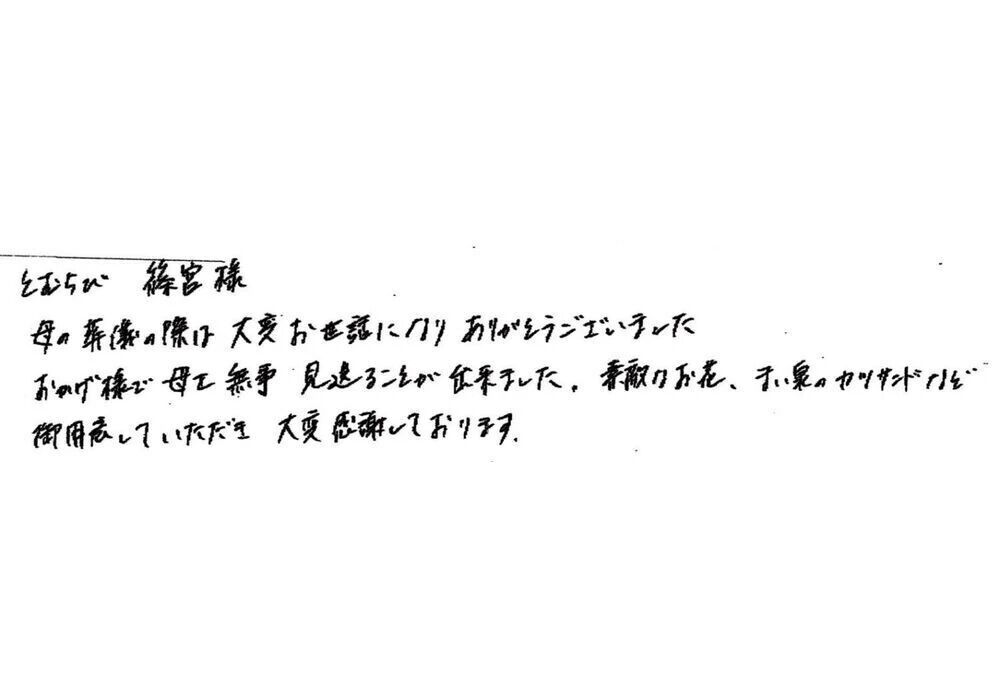 とむらび 篠宮様
母の葬儀の際は大変お世話になりありがとうございました
おかげ様で母を無事見送ることが出来ました。素敵なお花、まい泉のカツサンドなど
御用意していただき大変感謝しております。